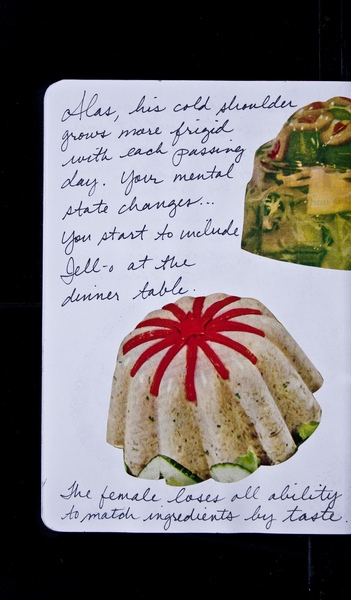 Alas, his cold shoulder
grows more frigid
with each passing
day. Your mental
state changes...
You start to include
Jell-o at the
dinner table.
The female loses all ability
to match ingredients by taste.